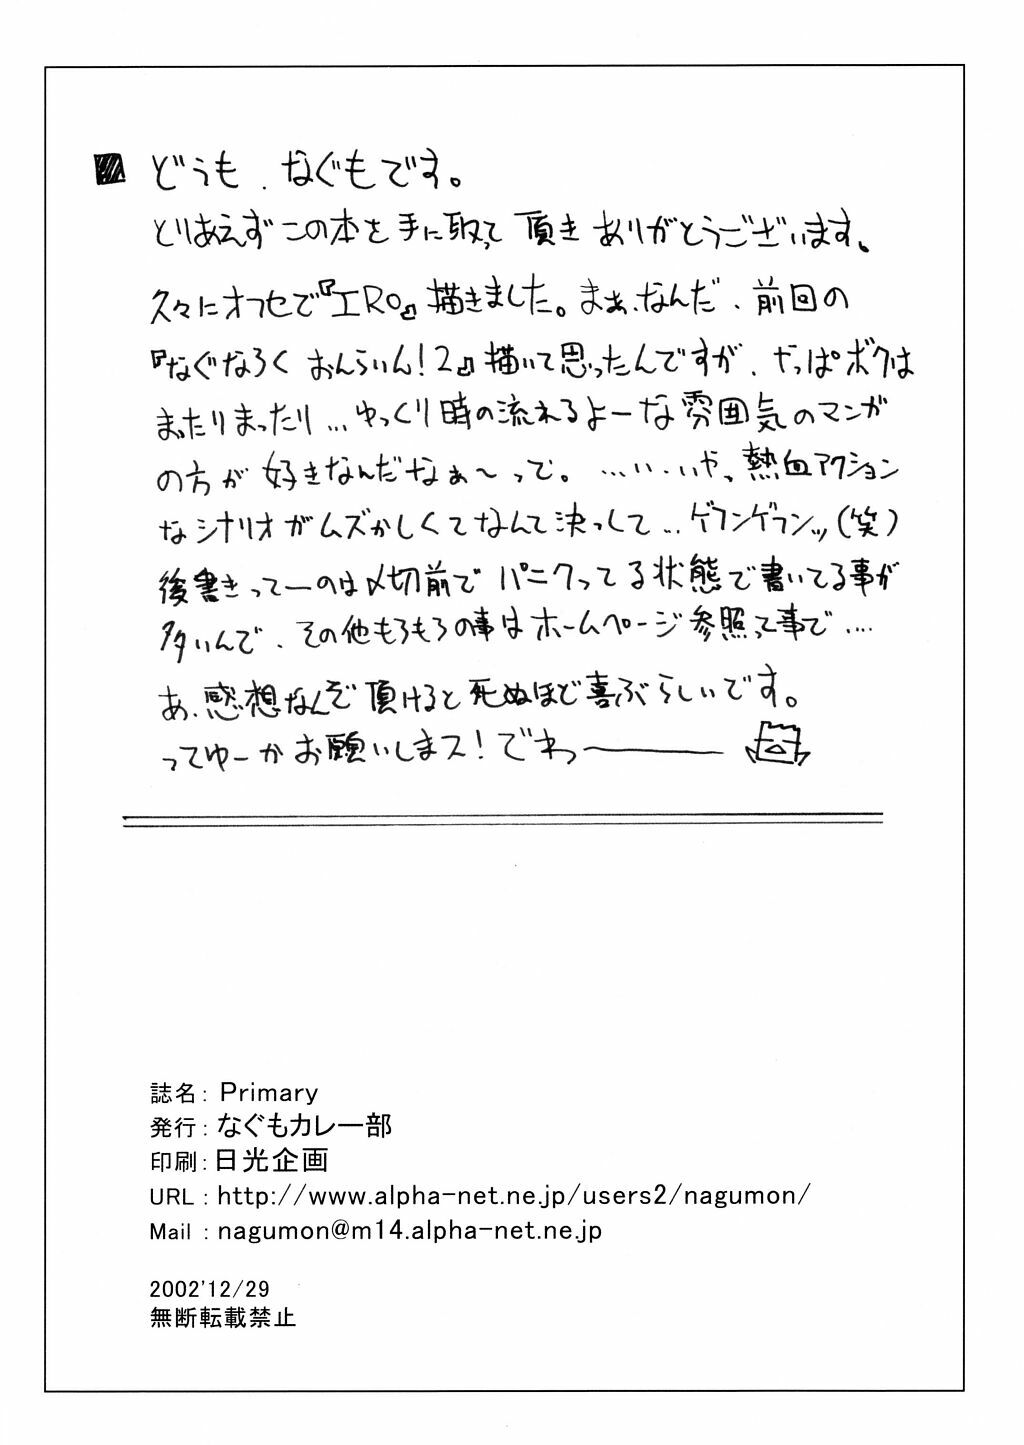 ■ どうも、なぐもです。
とりあえずこの本を手に取って頂きありがとうございます。
久々にオフセで『ERO』描きました。まぁ、なんだ、前回の
『なぐなろく おんらいん!2』描いて思ったんですが、やっぱボクは
まったりまったり…ゆっくり時の流れるよーな雰囲気のマンガ
の方が好きなんだなぁ〜って。……いや、熱血アクション
なシナリオがムズかしくてなんて決っして…ゲフンゲフンッ(笑)
後書きってーのは〆切前でパニクってる状態で書いてる事が
多いんで、その他もろもろの事はホームページ参照って事で….
あ、感想なんぞ頂けると死ぬほど喜ぶらしいです。
ってゆーかお願いしまス!でわっ———
誌名: Primary
発行: なぐもカレー部
印刷: 日光企画
URL : http://www.alpha-net.ne.jp/users2/nagumon/
Mail : nagumon@m14.alpha-net.ne.jp
2002'12/29
無断転載禁止